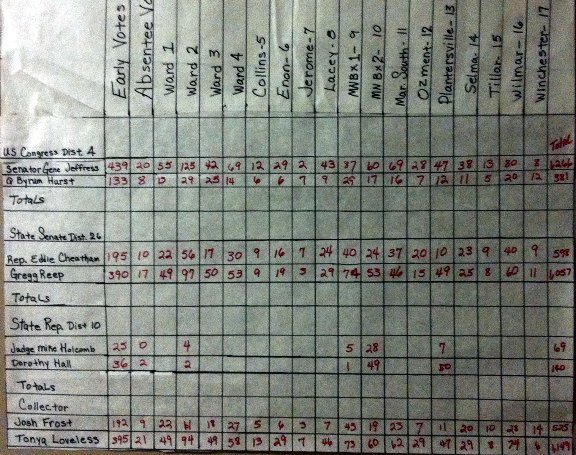 Early Votes Absentee Ward 1 Ward 2 Ward 3 Ward 4 Collins-5 Enon-6 Jerome-7 Lacey-8 MNBX1-9 MNBX2-10 Mar. South-11 Ozment-12 Plantersville-13 Selma-14 Tillar-15 Wilmar-16 Winchester-17
US Congress Dist. 4 Total
Senator Gene Jeffress 439 20 55 125 42 69 12 29 2 43 37 60 69 28 47 38 13 80 8
Q Byrum Hurst 133 8 29 25 14 6 6 7 9 29 17 16 7 12 11 5 20 12 381
Totals
State Senate Dist. 26
Rep. Eddie Cheatham 195 10 22 56 17 30 9 16 7 24 40 24 37 20 10 23 9 40 9 598
Gregg Reep 390 17 49 97 50 53 9 19 3 29 74 53 46 15 49 25 8 60 11 1,057
Totals
State Rep. Dist 10
Judge Mike Holcomb 25 0 4 5 28 7 69
Dorothy Hall 36 2 2 1 49
Totals
Collector
Josh Frost 192 9 22 18 27 5 6 3 7 43 19 23 7 11 20 10 28 14 525
Tonya Loveless 395 21 49 94 49 58 13 29 7 46 73 60 62 29 47 29 8 74 6